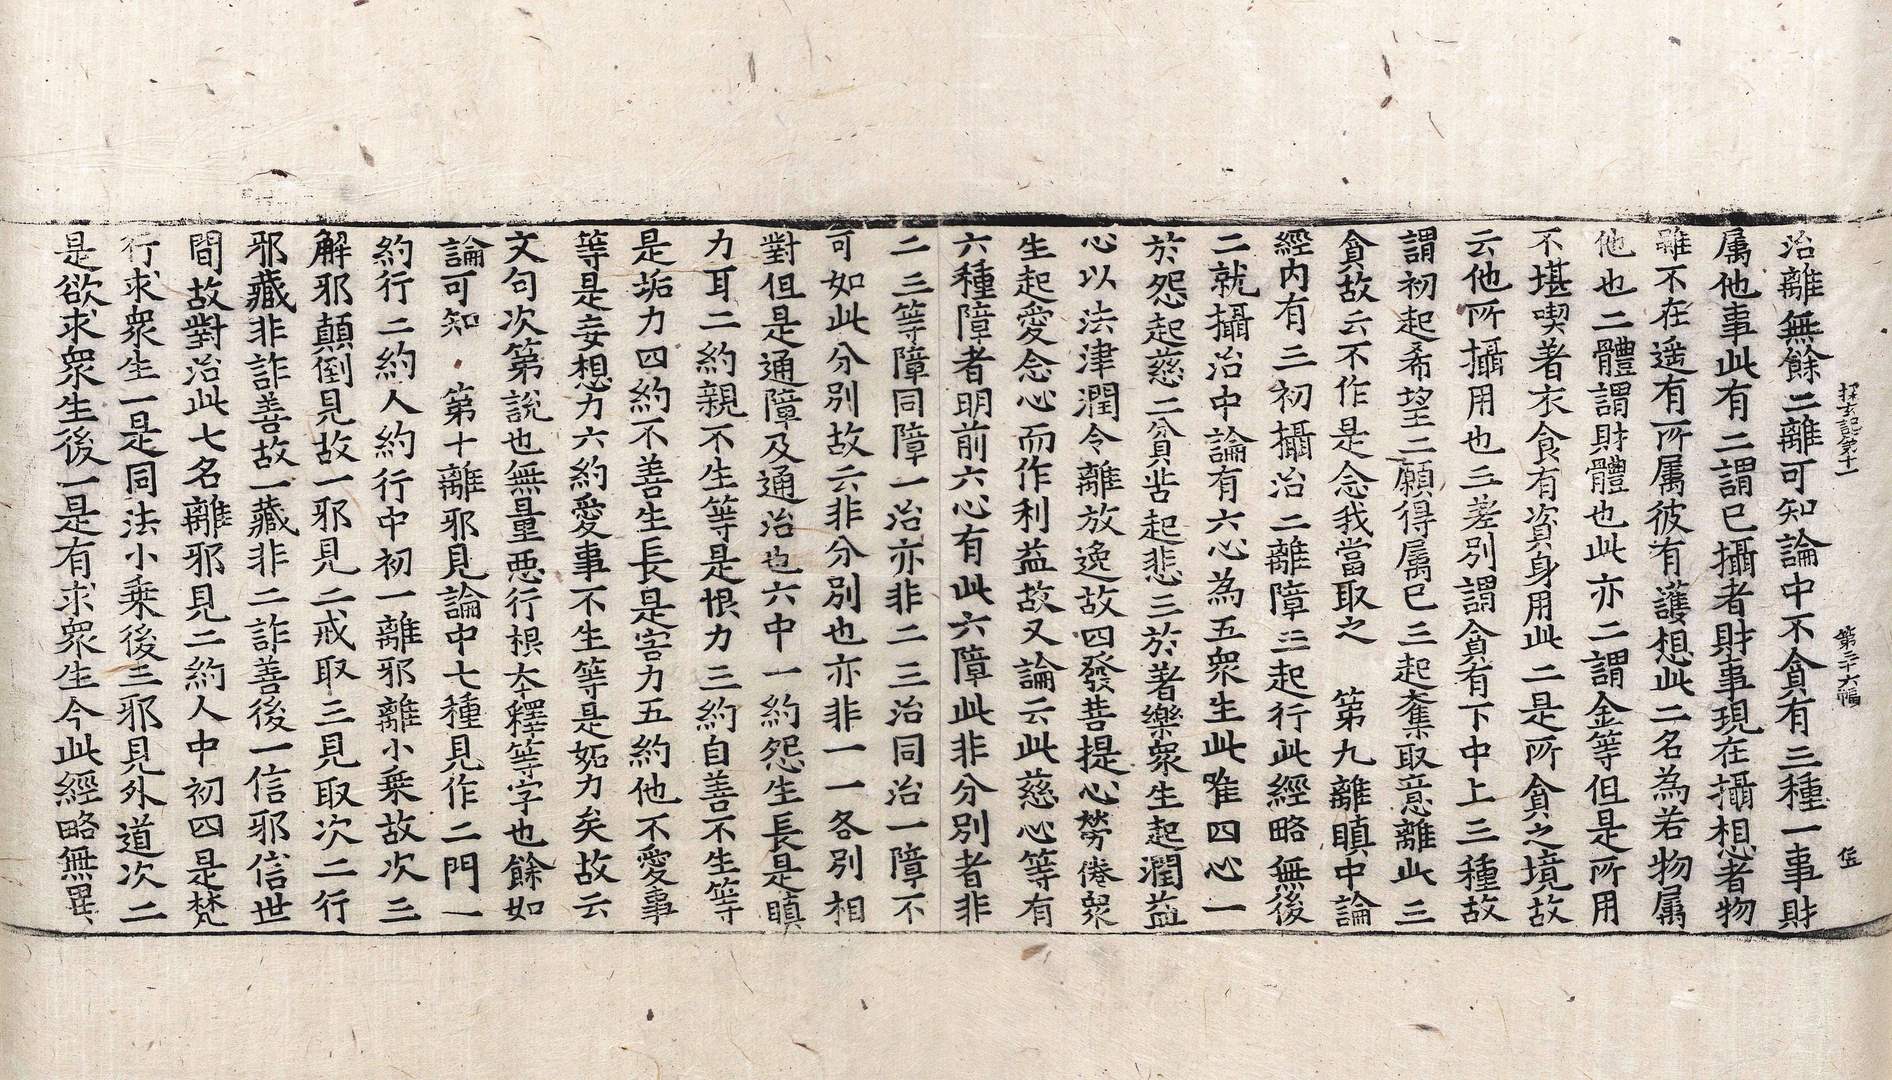 探玄記第十一 第三十六幅 伍
治離無餘二離可知論中不貪有三種一事財
属他事此有二謂已攝者財事現在攝想者物
雖不在遥有所属彼有護想此二名為若物属
他也二體謂財體也此亦二謂金等但是所用
不堪喫著衣食有資身用此二是所貪之境故
云他所攝用也三差别謂貪有下中上三種故
謂初起希望二願得属已三起奪取意離此三
貪故云不作是念我當取之 第九離瞋中論
經内有三初攝治二離障三起行此經略無後
二就攝治中論有六心為五衆生此唯四心一
於怨起慈二貧苦起悲三於著樂衆生起潤益
心以法津潤令離放逸故四發菩提心勞倦衆
生起愛念心而作利益故又論云此慈心等有
六種障者明前六心有此六障此非分别者非
二三等障同障一治亦非二三治同治一障不
可如此分别故云非分别也亦非一一各别相
對但是通障及通治也六中一約怨生長是瞋
力耳二約親不生等是恨力三約自善不生等
是垢力四約不善生長是害力五約他不愛事
等是妄想力六約愛事不生等是妬力矣故云
文句次第說也無量悪行根本釋等字也餘如
論可知 第十離邪見論中七種見作二門一
約行二約人約行中初一離邪離小乗故次三
解邪顛倒見故一邪見二戒取三見取次二行
邪藏非詐善故一藏非二詐善後一信邪信世
間故對治此七名離邪見二約人中初四是梵
行求衆生一是同法小乗後三邪見外道次二
是欲求衆生後一是有求衆生今此經略無異